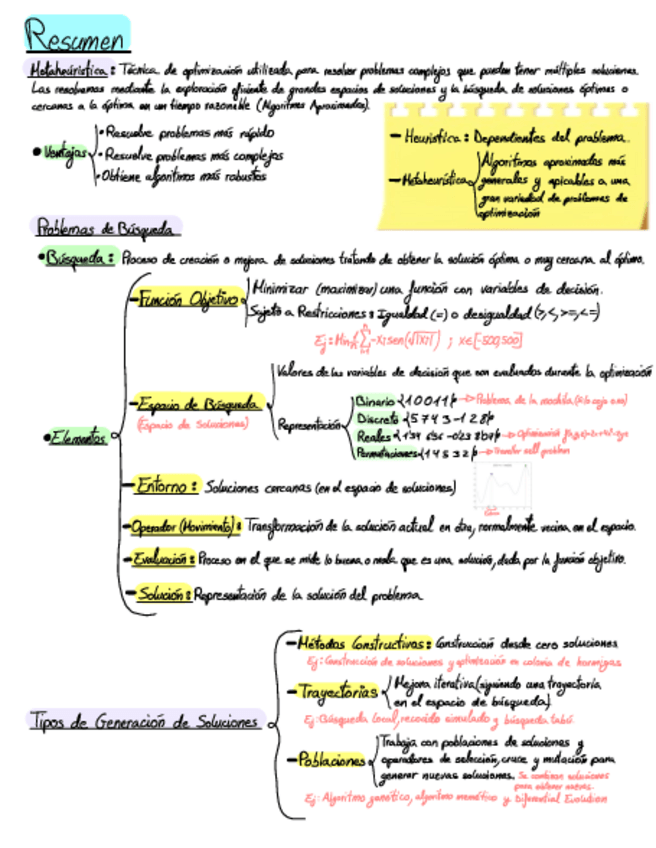 Resumen
Metaheurística: Técnica de optimización utilizada para resolver problemas complejos que pueden tener múltiples soluciones.
Las resolvemos mediante la exploración eficiente de grandes espacios de soluciones y la búsqueda de soluciones óptimas o
cercanas a la óptima en un tiempo razonable (Algoritmos Aproximados).
• Ventajas
• Resuelve problemas más rápido
• Resuelve problemas más complejos
• Obtiene algoritmos más robustos
- Heurística: Dependientes del problema.
- Metaheurística
Algoritmos aproximados más
generales y aplicables a una
gran variedad de problemas de
optimización
Problemas de Búsqueda
• Búsqueda: Proceso de creación o mejora de soluciones tratando de obtener la solución óptima o muy cercana al óptimo.
• Elementos
- Función Objetivo
Minimizar (maximizar) una función con variables de decisión.
Sujeto a Restricciones: Igualdad (=) o desigualdad (>,<,>=,<=)
; x∈[-500,500]
- Espacio de Búsqueda
(Espacio de Soluciones)
Valores de las variables de decisión que son evaluados durante la optimización
Representación
Binario {10011} → Problema de la mochila
Discreto
Reales → Optimización
Permutaciones {14532} →
- Entorno: Soluciones cercanas (en el espacio de soluciones)
- Operador (Movimiento): Transformación de la solución actual en otra, normalmente vecina en el espacio.
- Evaluación: Proceso en el que se mide lo buena o mala que es una solución, dada por la función objetivo.
- Solución: Representación de la solución del problema
Tipos de Generación de Soluciones
- Métodos Constructivos: Construcción desde cero soluciones
Ej: Construcción de soluciones y optimización en colonia de hormigas
- Trayectorias
Mejora iterativa (siguiendo una trayectoria
en el espacio de búsqueda)
Ej: Búsqueda local, recocido simulado y búsqueda tabú
- Poblaciones
Trabaja con poblaciones de soluciones y
operadores de selección, cruce y mutación para
generar nuevas soluciones. Se combinan soluciones
para obtener nuevas
Ej: Algoritmo genético, algoritmo memético y Diferential Evolution